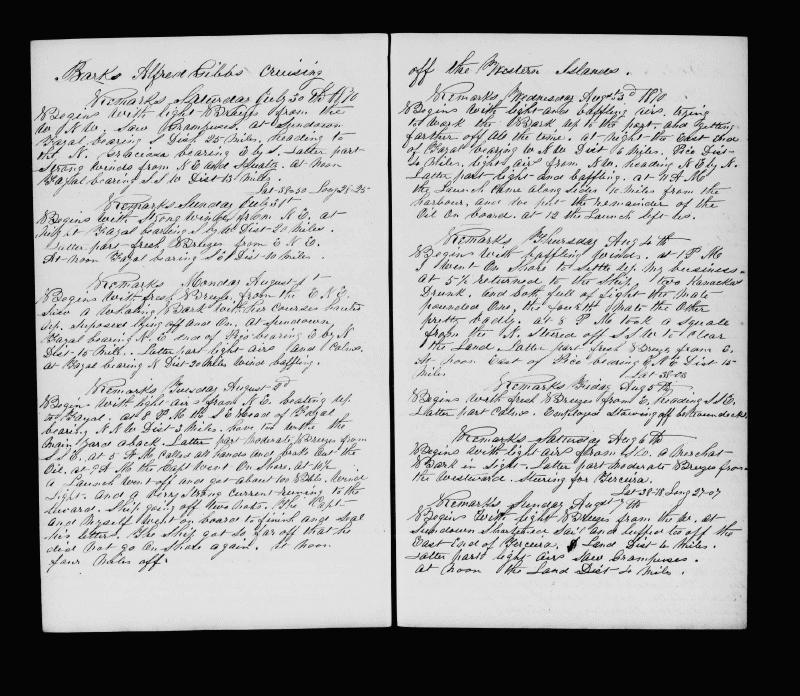 Barks Alfred Gibbs Cruising
Remarks Saturday July 30th 1870
Begins with light Breezes from the
W.N.W. Saw Grampuses. at Sundown
Fayal bearing S Dist 25 Miles. heading to
the N. Graciosa bearing E by S. Latter part
Strong winds from N.E. and Squalls. at Noon
Fayal bearing S.S.W Dist 15 Miles.
Lat 38=50 Long 28=25
Remarks Sunday July 31st
Begins with Strong Winds from N.E. at
Night Fayal bearing S by W. Dist 20 Miles.
Latter part fresh Breezes from E N E.
At Noon Fayal bearing S E Dist 10 Miles.
Remarks Monday August 1st
Begins with fresh Breezes from the E.N.E.
Saw a Whaling Bark with her Courses hauled
up. Supposed lying off and On. At Sundown
Fayal bearing N.E. end of Pico bearing E by N
Dist 10 Mils. Latter part light airs and Calms.
at Fayal bearing N Dist 20 Miles wind baffling.
Remarks Tuesday August 2d
Begins with light airs from N.E. beating up
to Fayal. At 8 P.M the S E Head of Fayal
bearing N.N.W Dist 3 Miles. have too with the
Main Yard aback. Latter part Moderate Breezes from
S.S.E. at 5 A.M. Called all hands and broke Out the
Oil. at 9 A.M the Capt Went On Shore. at 10½
a Launch Went off and got about 100 Bbls. Wind
Light. And a Very Strong Current running to the
leward. Ship going off two knots. The Capt
And Myself Went on board to finish and Seal
his letters. The Ship got so far off that he
did not go On Shore again. at Noon
four Miles off.
off the Western Islands.
Remarks Wednesday Augst 3d 1870
Begins With light and baffling airs. trying
to work the Bark up to the port, and getting
farther off All the time. at Night the East End
of Fayal bearing W.N.W Dist 6 Miles. Pico Dist
4 Miles, light airs from N.W. heading N.E by N.
Latter part light and baffling. at 11 A.M.
the Launch Came along Side 10 Miles from the
harbour, and we put the remainder of the
Oil On board. at 12 the Launch left us.
Remarks Thursday Aug 4th
Begins With baffling Winds. at 1 P.M.
I Went On Shore to Settle up My business.
At 5½ returned to the Ship. two Kanackas
Drunk. and both full of fight the Mate
pounded One, the fourth Mate the Other
pretty badly. at 8 P M took a Squale
from the N. Stered off S.S.W to Clear
the Land. Latter part fresh Breezes from E.
At Noon East of Pico bearing N.E Dist 15
Miles. Lat 38=08
Remarks Friday Aug 5th
Begins with fresh Breezes from E. heading S.S.E.
Latter part Calms. Employed Stowing off between decks.
Remarks Saturday Aug 6th
Begins with light airs from S.W. a Merchat
Bark in Sight. Latter part Moderate Breezes from
the Westward. Steering for Terceira.
Lat 38=18 Long 27=07
Remarks Sunday August 7th
Begins With light Breezes from the W. at
Sundown Shortened Sail and luffed too off the
East End of Terceira. Land Dist 6 Miles.
Latter part light airs Saw Grampuses.
at Noon the Land Dist 4 Miles.